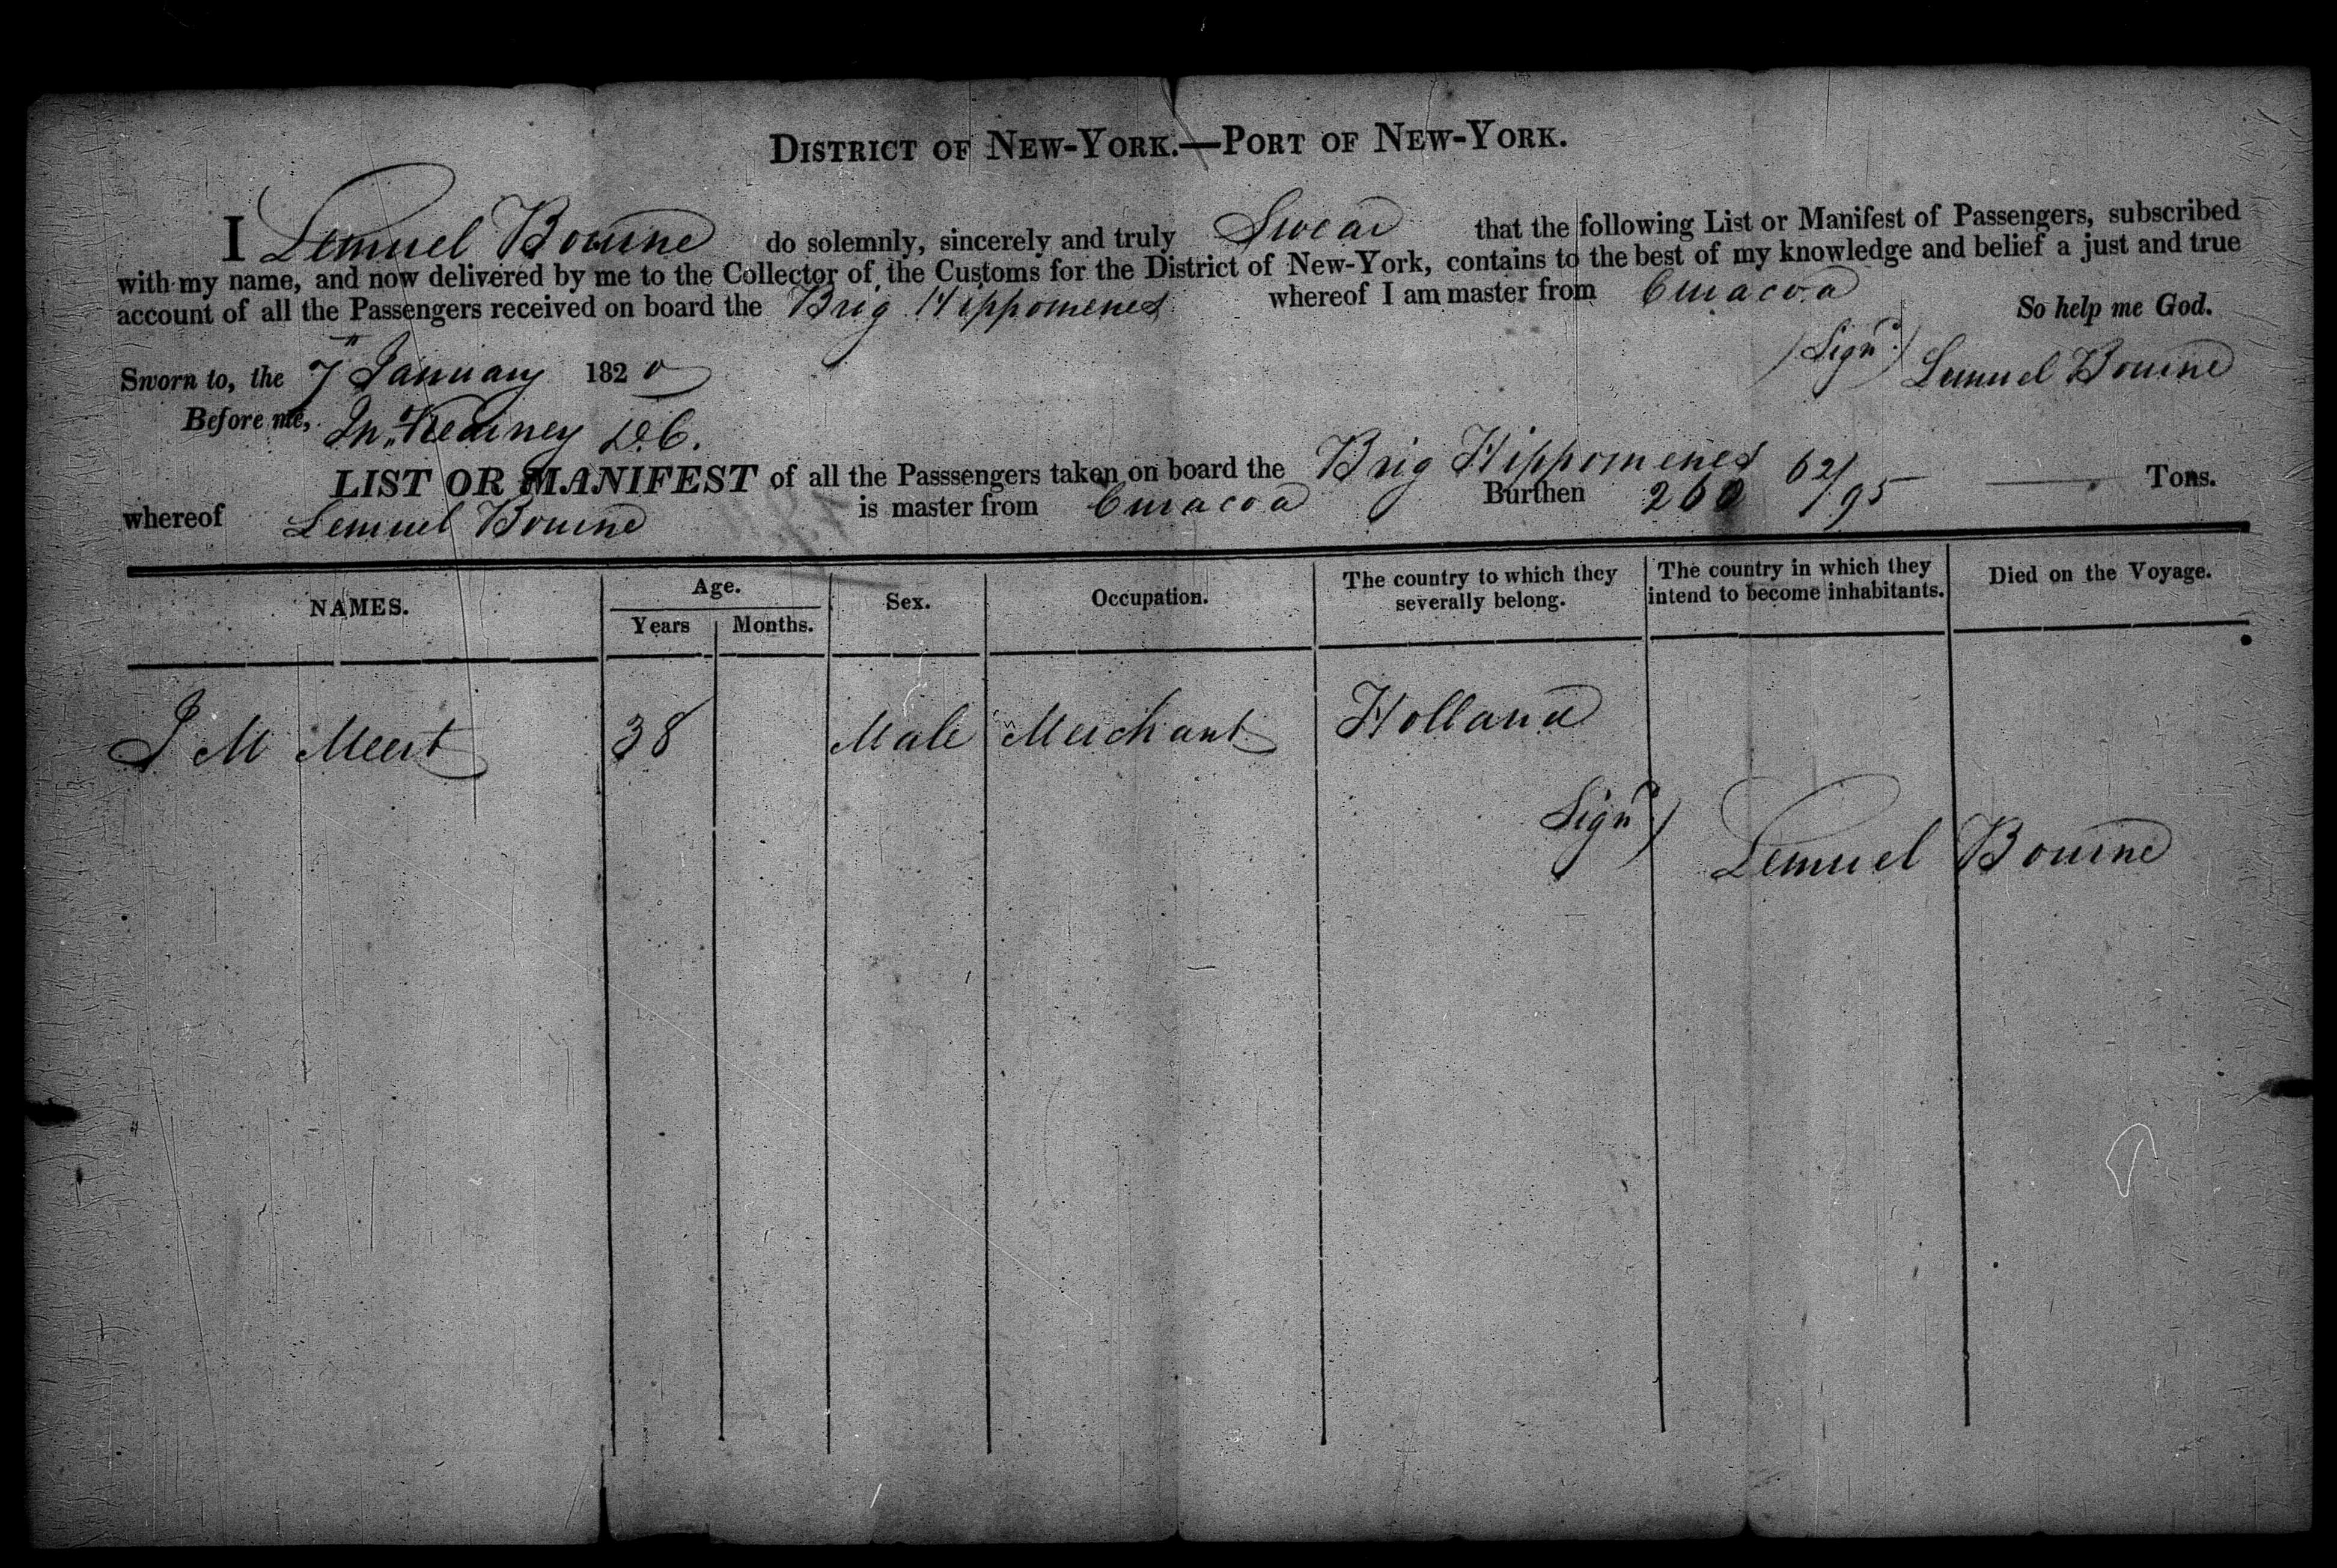 DISTRICT OF NEW-YORK.—PORT OF NEW-YORK.
I Lemuel Bourne do solemnly, sincerely and truly Swear that the following List or Manifest of Passengers, subscribed
with my name, and now delivered by me to the Collector of the Customs for the District of New-York, contains to the best of my knowledge and belief a just and true
account of all the Passengers received on board the Brig Hippomenes whereof I am master from Curacoa
So help me God.
(Signd) Lemuel Bourne
Sworn to, the 7th January 1820
Before me, Jn. Kearney D.C.
LIST OR MANIFEST of all the Passsengers taken on board the Brig Hippomenes
whereof Lemuel Bourne is master from Curacoa Burthen 260 62/95 Tons.
NAMES. Age. Sex. Occupation. The country to which they severally belong. The country in which they intend to become inhabitants. Died on the Voyage.
Years Months.
J M Meert 38 Male Merchant Holland
Signd) Lemuel Bourne